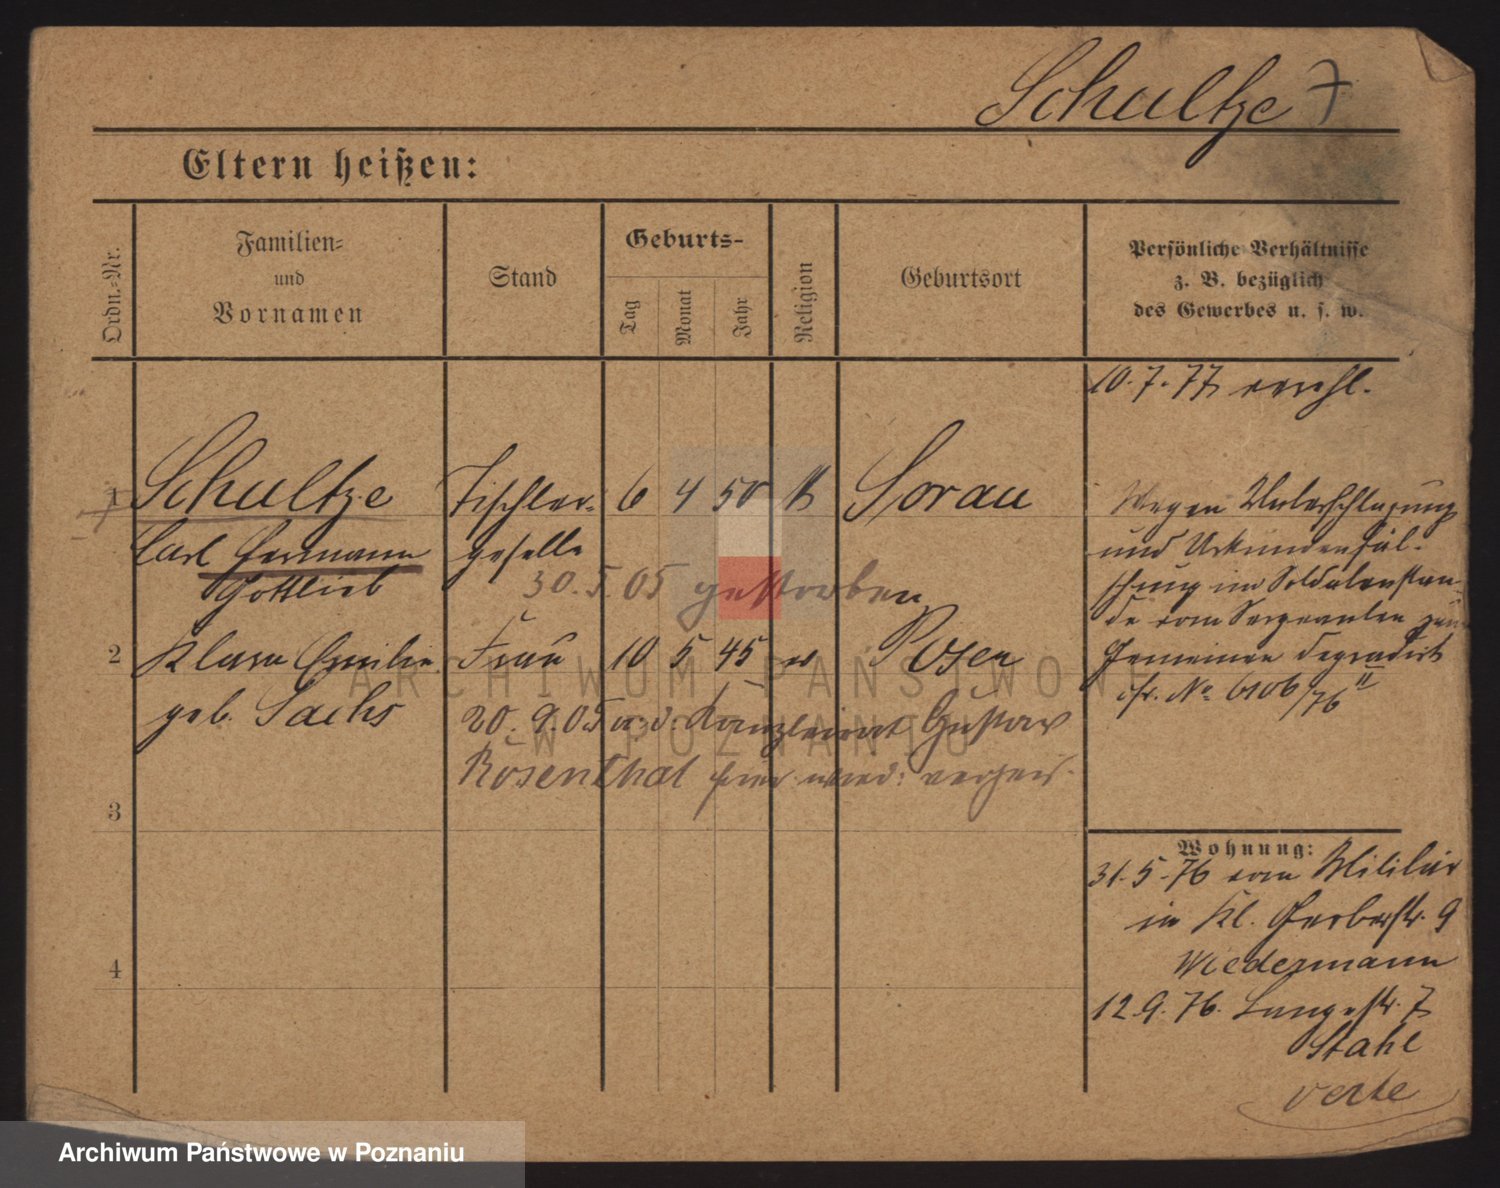 Schultze 7
Eltern heißen:
Ordn.-Nr.
Familien-
und
Vornamen
Stand
Geburts-
Tag
Monat
Jahr
Religion
Geburtsort
Persönliche Verhältnisse
z. B. bezüglich
des Gewerbes u. s. w.
10.7.77 verehl.
1 Schultze Tischler- 6 4 50 Sorau
Carl Hermann geselle
Gottlieb
30.5.05 gestorben
2 Klara Emilie Frau 10 5 45 Posen
geb. Sachs
20.9.05 Kanzleirat Gustav
Rosenthal
3
4
Wegen Unterschlagung
und Urkundenfäl-
schung im Soldatenstan-
de vom Sergeanten zum
Gemeinen degradirt
cfr. No 6106/76 II
Wohnung:
31.5.76 vom Militär
in Kl. Gerberstr. 9
Wiedermann
12.9.76. Langestr. 7
Stahl
verte
ARCHIWUM PAŃSTWOWE
W POZNANIU
Archiwum Państwowe w Poznaniu